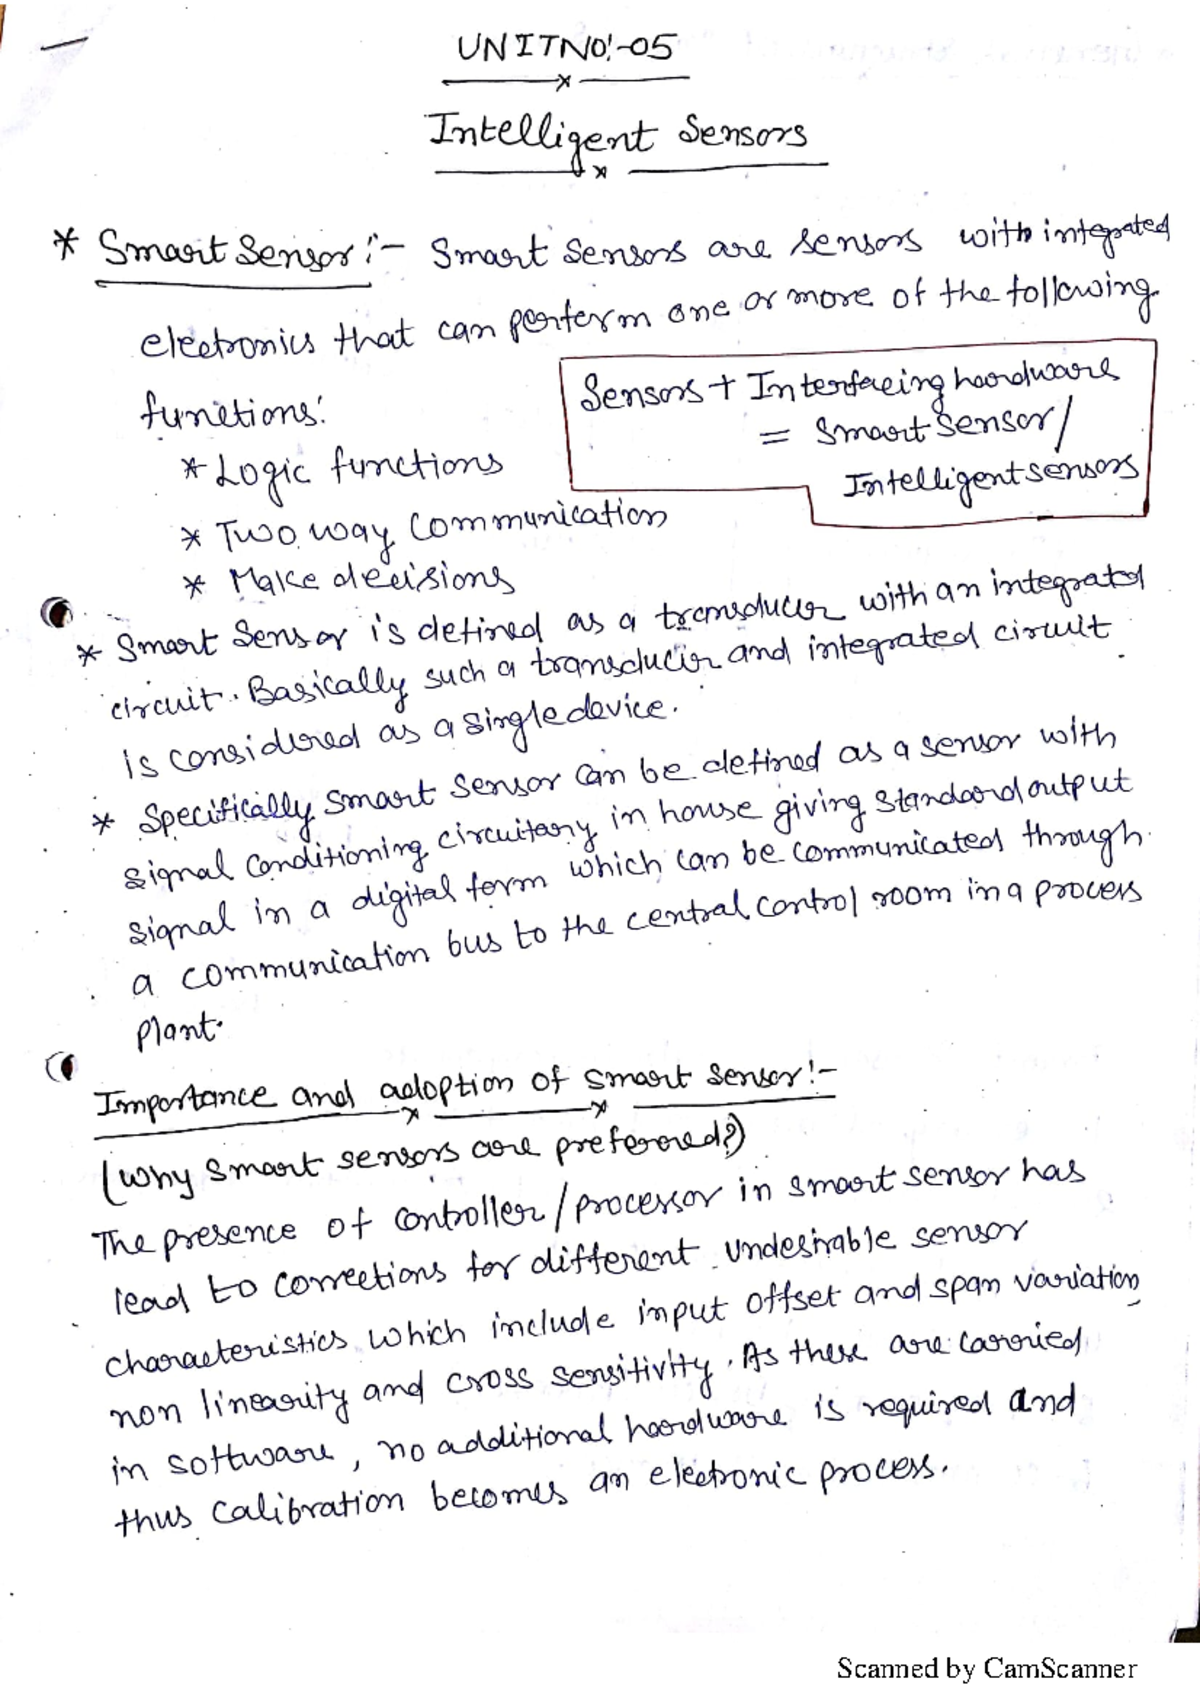 UNITNO:-05
Intelligent Sensors
* Smart Sensor:- Smart Sensors are sensors with integrated
electronics that can perform one or more of the following
functions:
Sensors + Interfacing hardware
= Smart Sensor/
Intelligent sensors
* Logic functions
* Two way Communication
* Make decisions
* Smart Sensor is defined as a transducer with an integrated
circuit. Basically such a transducer and integrated circuit
is considered as a single device.
* Specifically smart sensor can be defined as a sensor with
signal conditioning circuitary in house giving standard output
signal in a digital form which can be communicated through
a communication bus to the central control room in a process
plant.
Importance and adoption of smart sensor:-
(Why smart sensors are preferred?)
The presence of controller/processor in smart sensor has
lead to corrections for different undesirable sensor
characteristics which include input offset and span variation
non linearity and cross sensitivity. As these are carried
in software, no additional hardware is required and
thus calibration becomes an electronic process.
Scanned by CamScanner